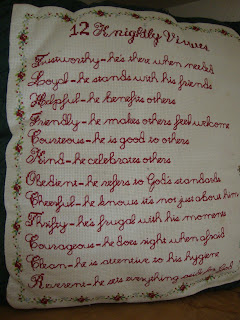 12 Knightly Virtues
Trustworthy-he's there when needed
Loyal-he stands with his friends
Helpful-he benefits others
Friendly-he makes others feel welcome
Courteous-he is good to others
Kind-he celebrates others
Obedient-he refers to God's standards
Cheerful-he knows it's not just about him
Thrifty-he's frugal with his moments
Courageous-he does right when afraid
Clean-he is attentive to his hygiene
Reverent-he sets everything